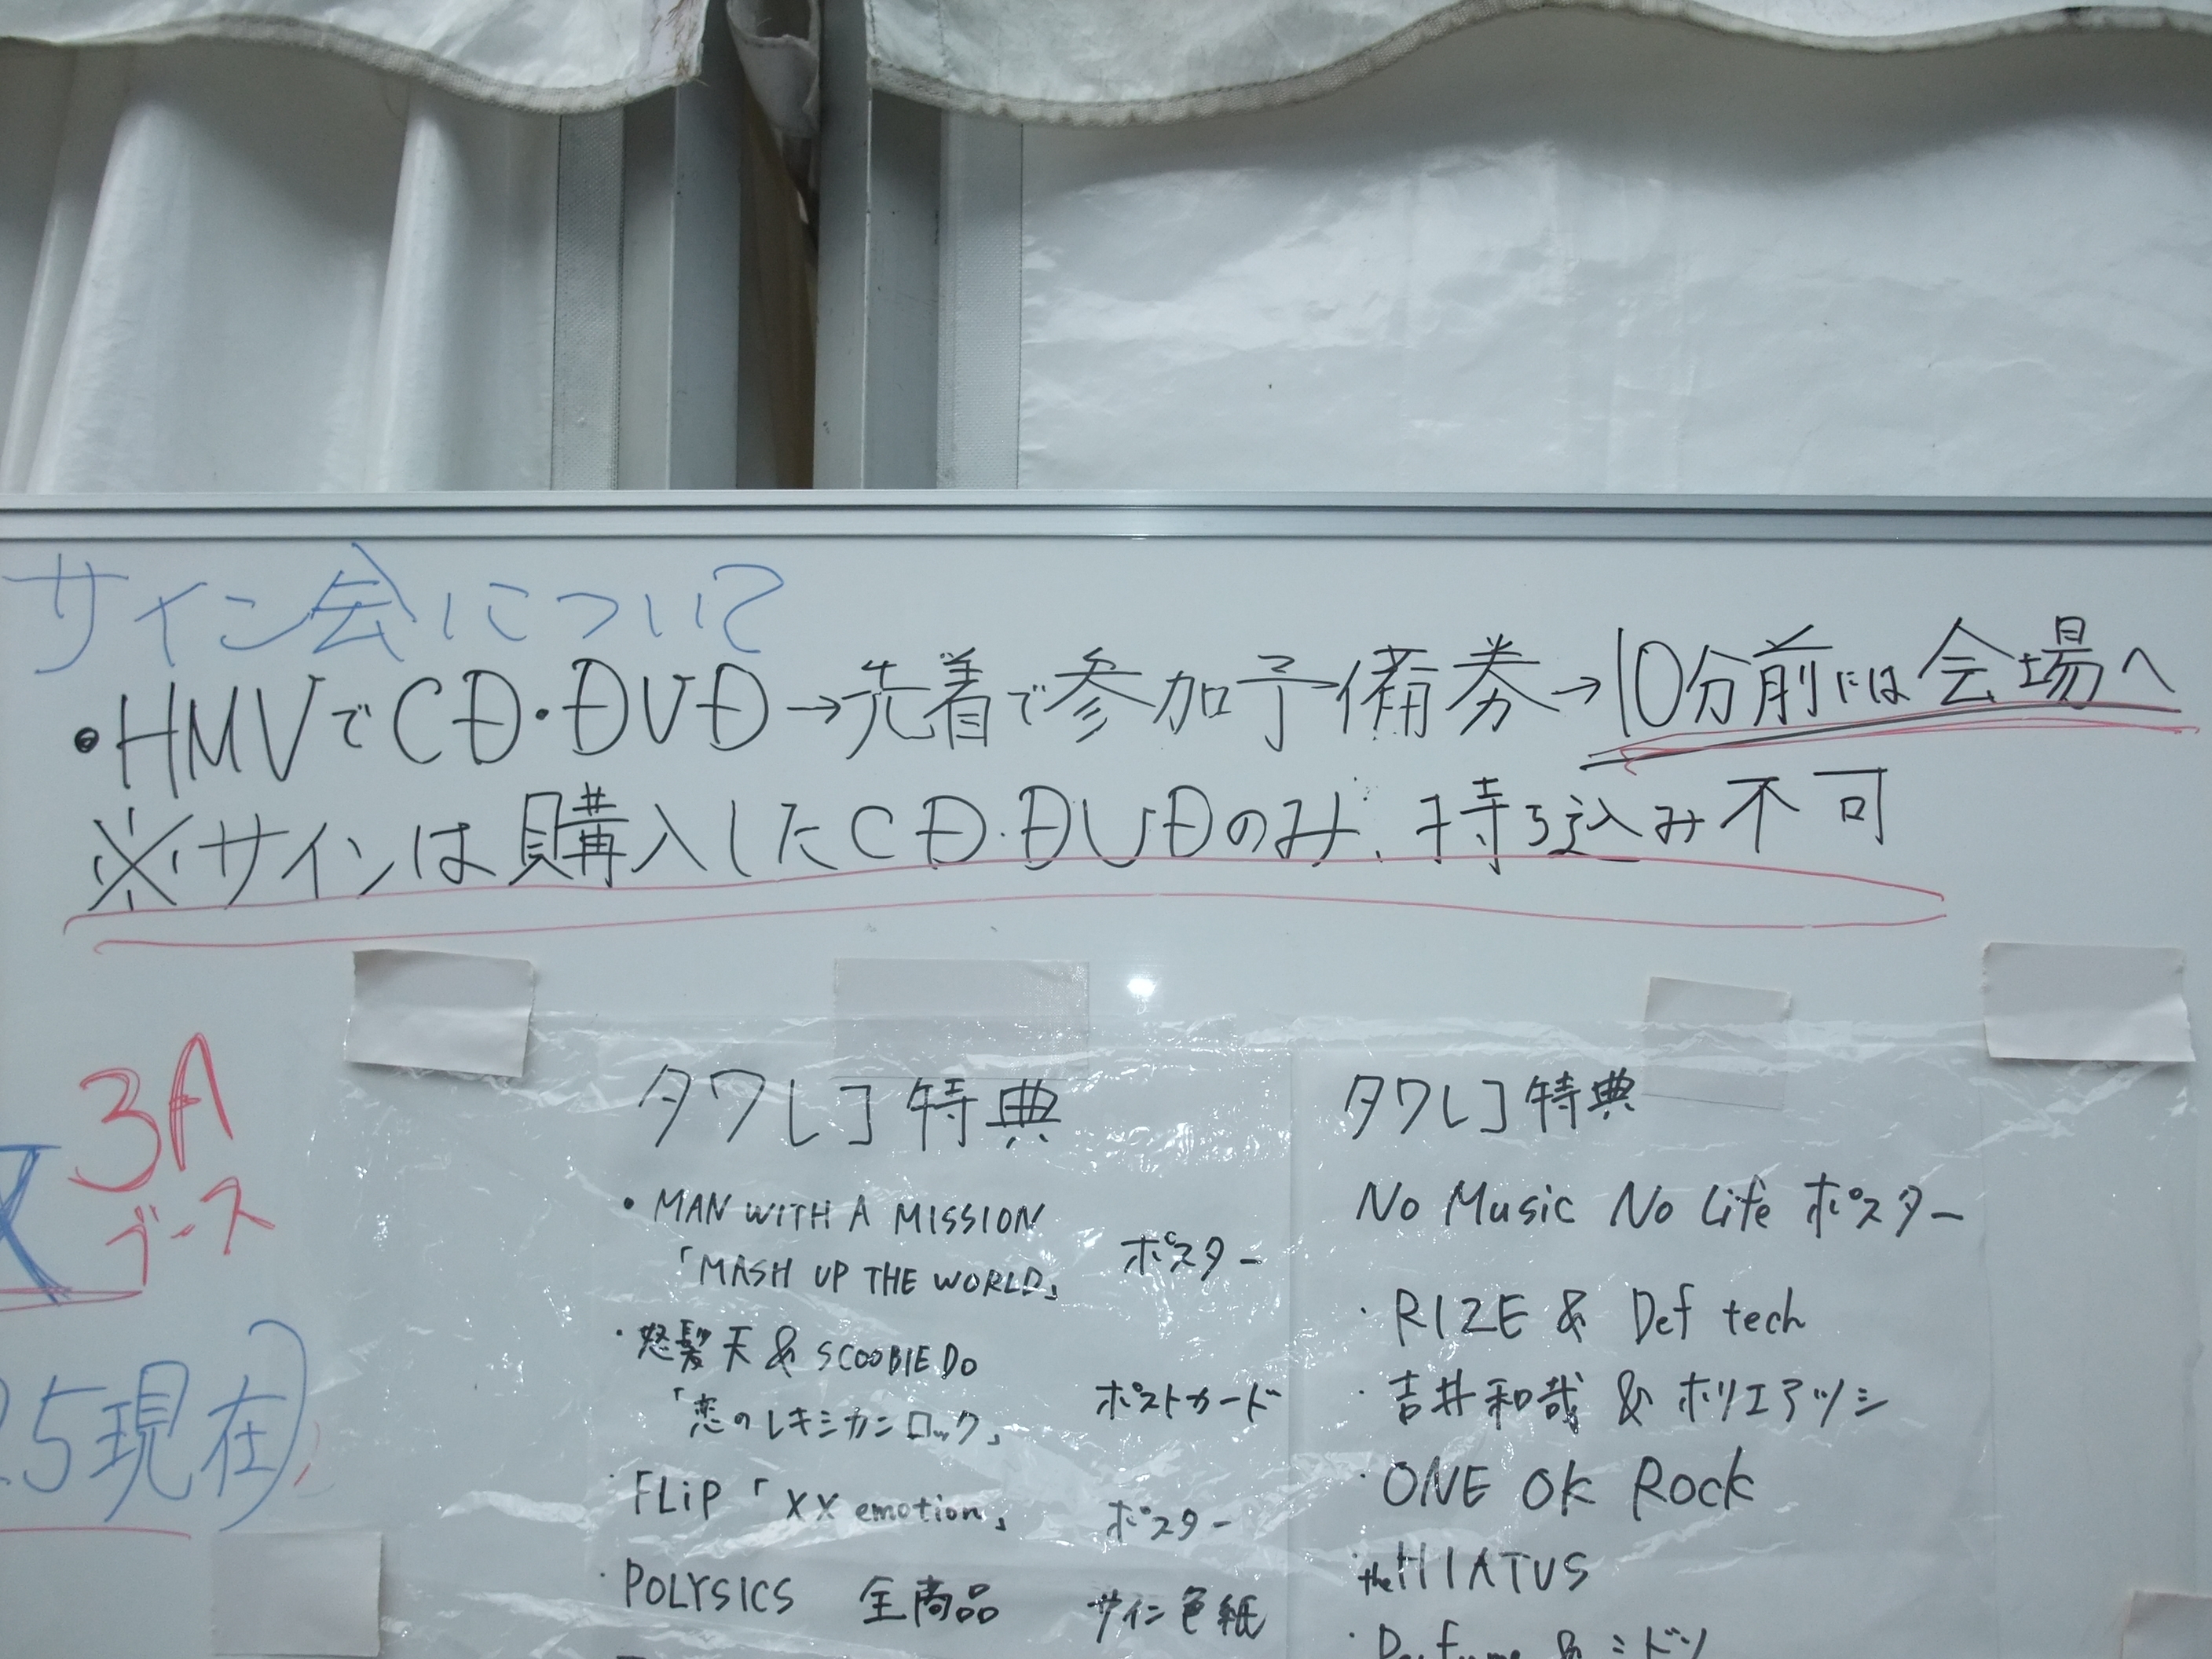 サイン会について
・HMVでCD・DVD→先着で参加予備券→10分前には会場へ
※サインは購入したCD・DVDのみ、持ち込み不可
3A
ブース
.5現在)
タワレコ特典
・MAN WITH A MISSION
「MASH UP THE WORLD」 ポスター
・怒髪天 & SCOOBIE DO
「恋のレキシカンロック」 ポストカード
・FLiP「XX emotion」 ポスター
・POLYSICS 全商品 サイン色紙
タワレコ特典
No Music No Life ポスター
・RIZE & Def tech
・吉井和哉 & ホリエアツシ
・ONE OK ROCK
・the HIATUS
・Perfume & ミドリ